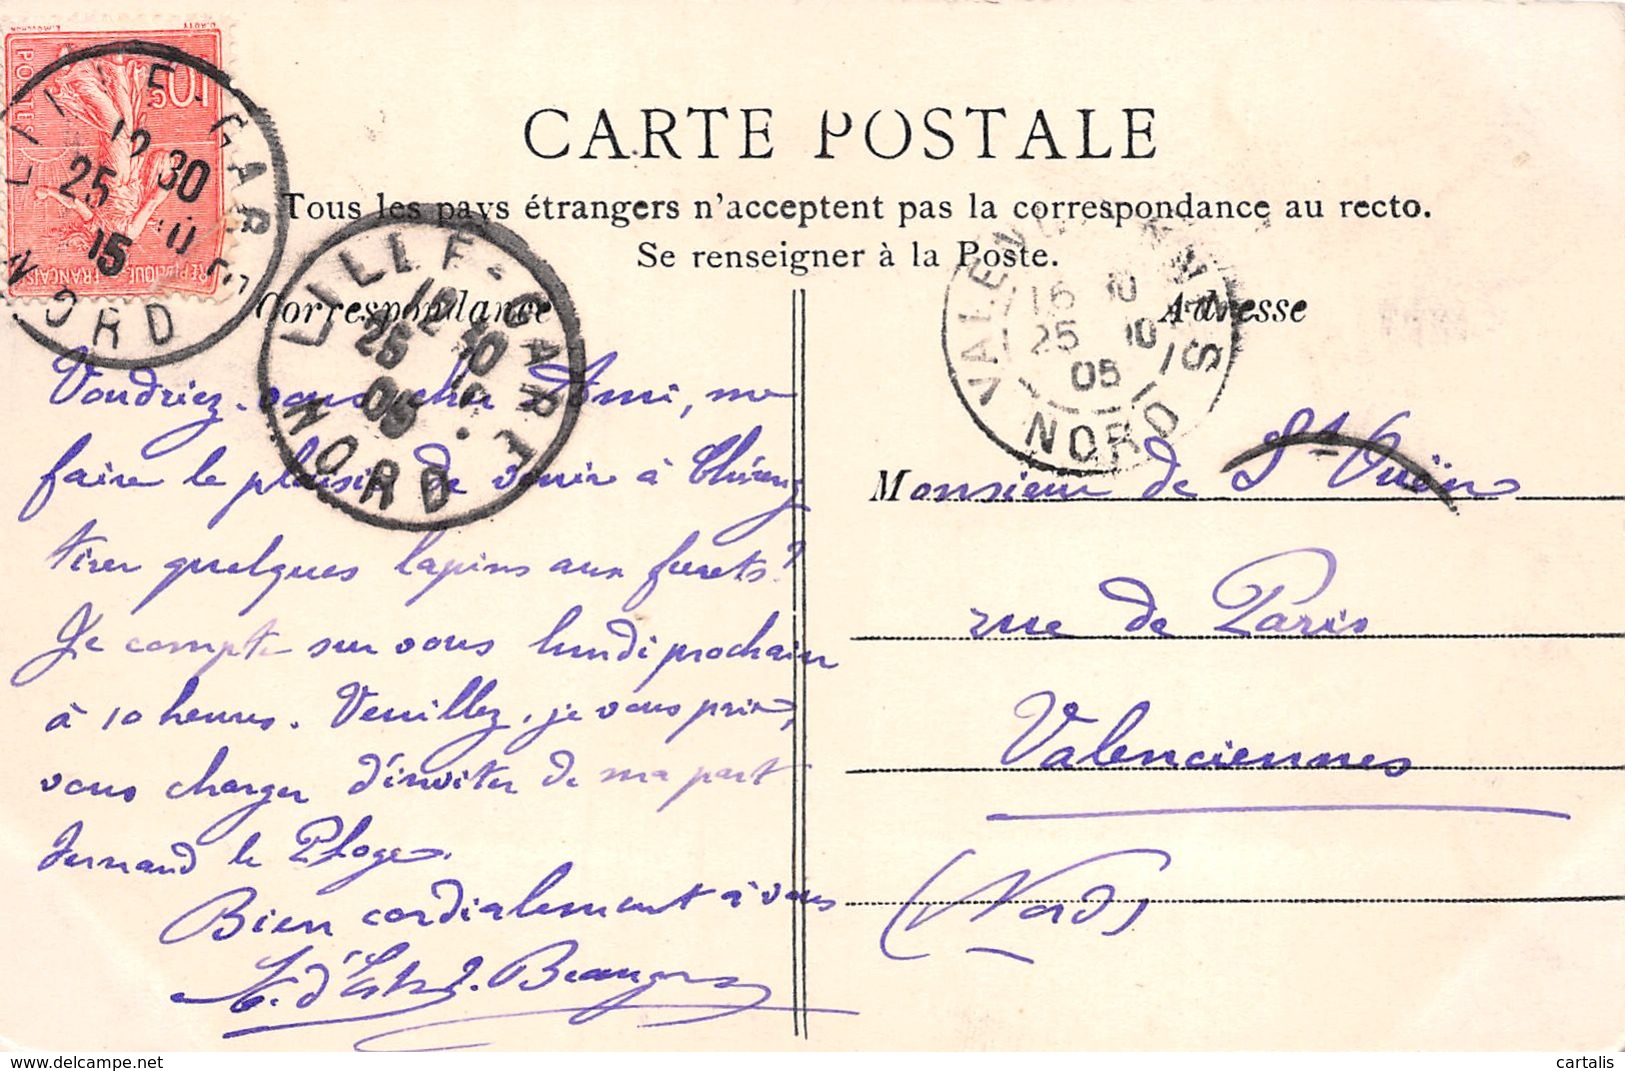 CARTE POSTALE
Tous les pays étrangers n'acceptent pas la correspondance au recto.
Se renseigner à la Poste.
Correspondance
Adresse
10c
POSTES
REPUBLIQUE FRANCAISE
LILLE-GARE
12 30
25 10
NORD
LILLE-GARE
12 40
25 10
05
NORD
VALENCIENNES
16 10
25 10
05
NORD
Voudriez-vous cher Ami, me
faire le plaisir de venir à
tirer quelques lapins aux furets?
Je compte sur vous lundi prochain
à 10 heures. Veuillez, je vous prie,
vous charger d'inviter de ma part
Fernand le
Bien cordialement à vous
Monsieur de St Ouën
rue de Paris
Valenciennes
(Nord)
cartalis